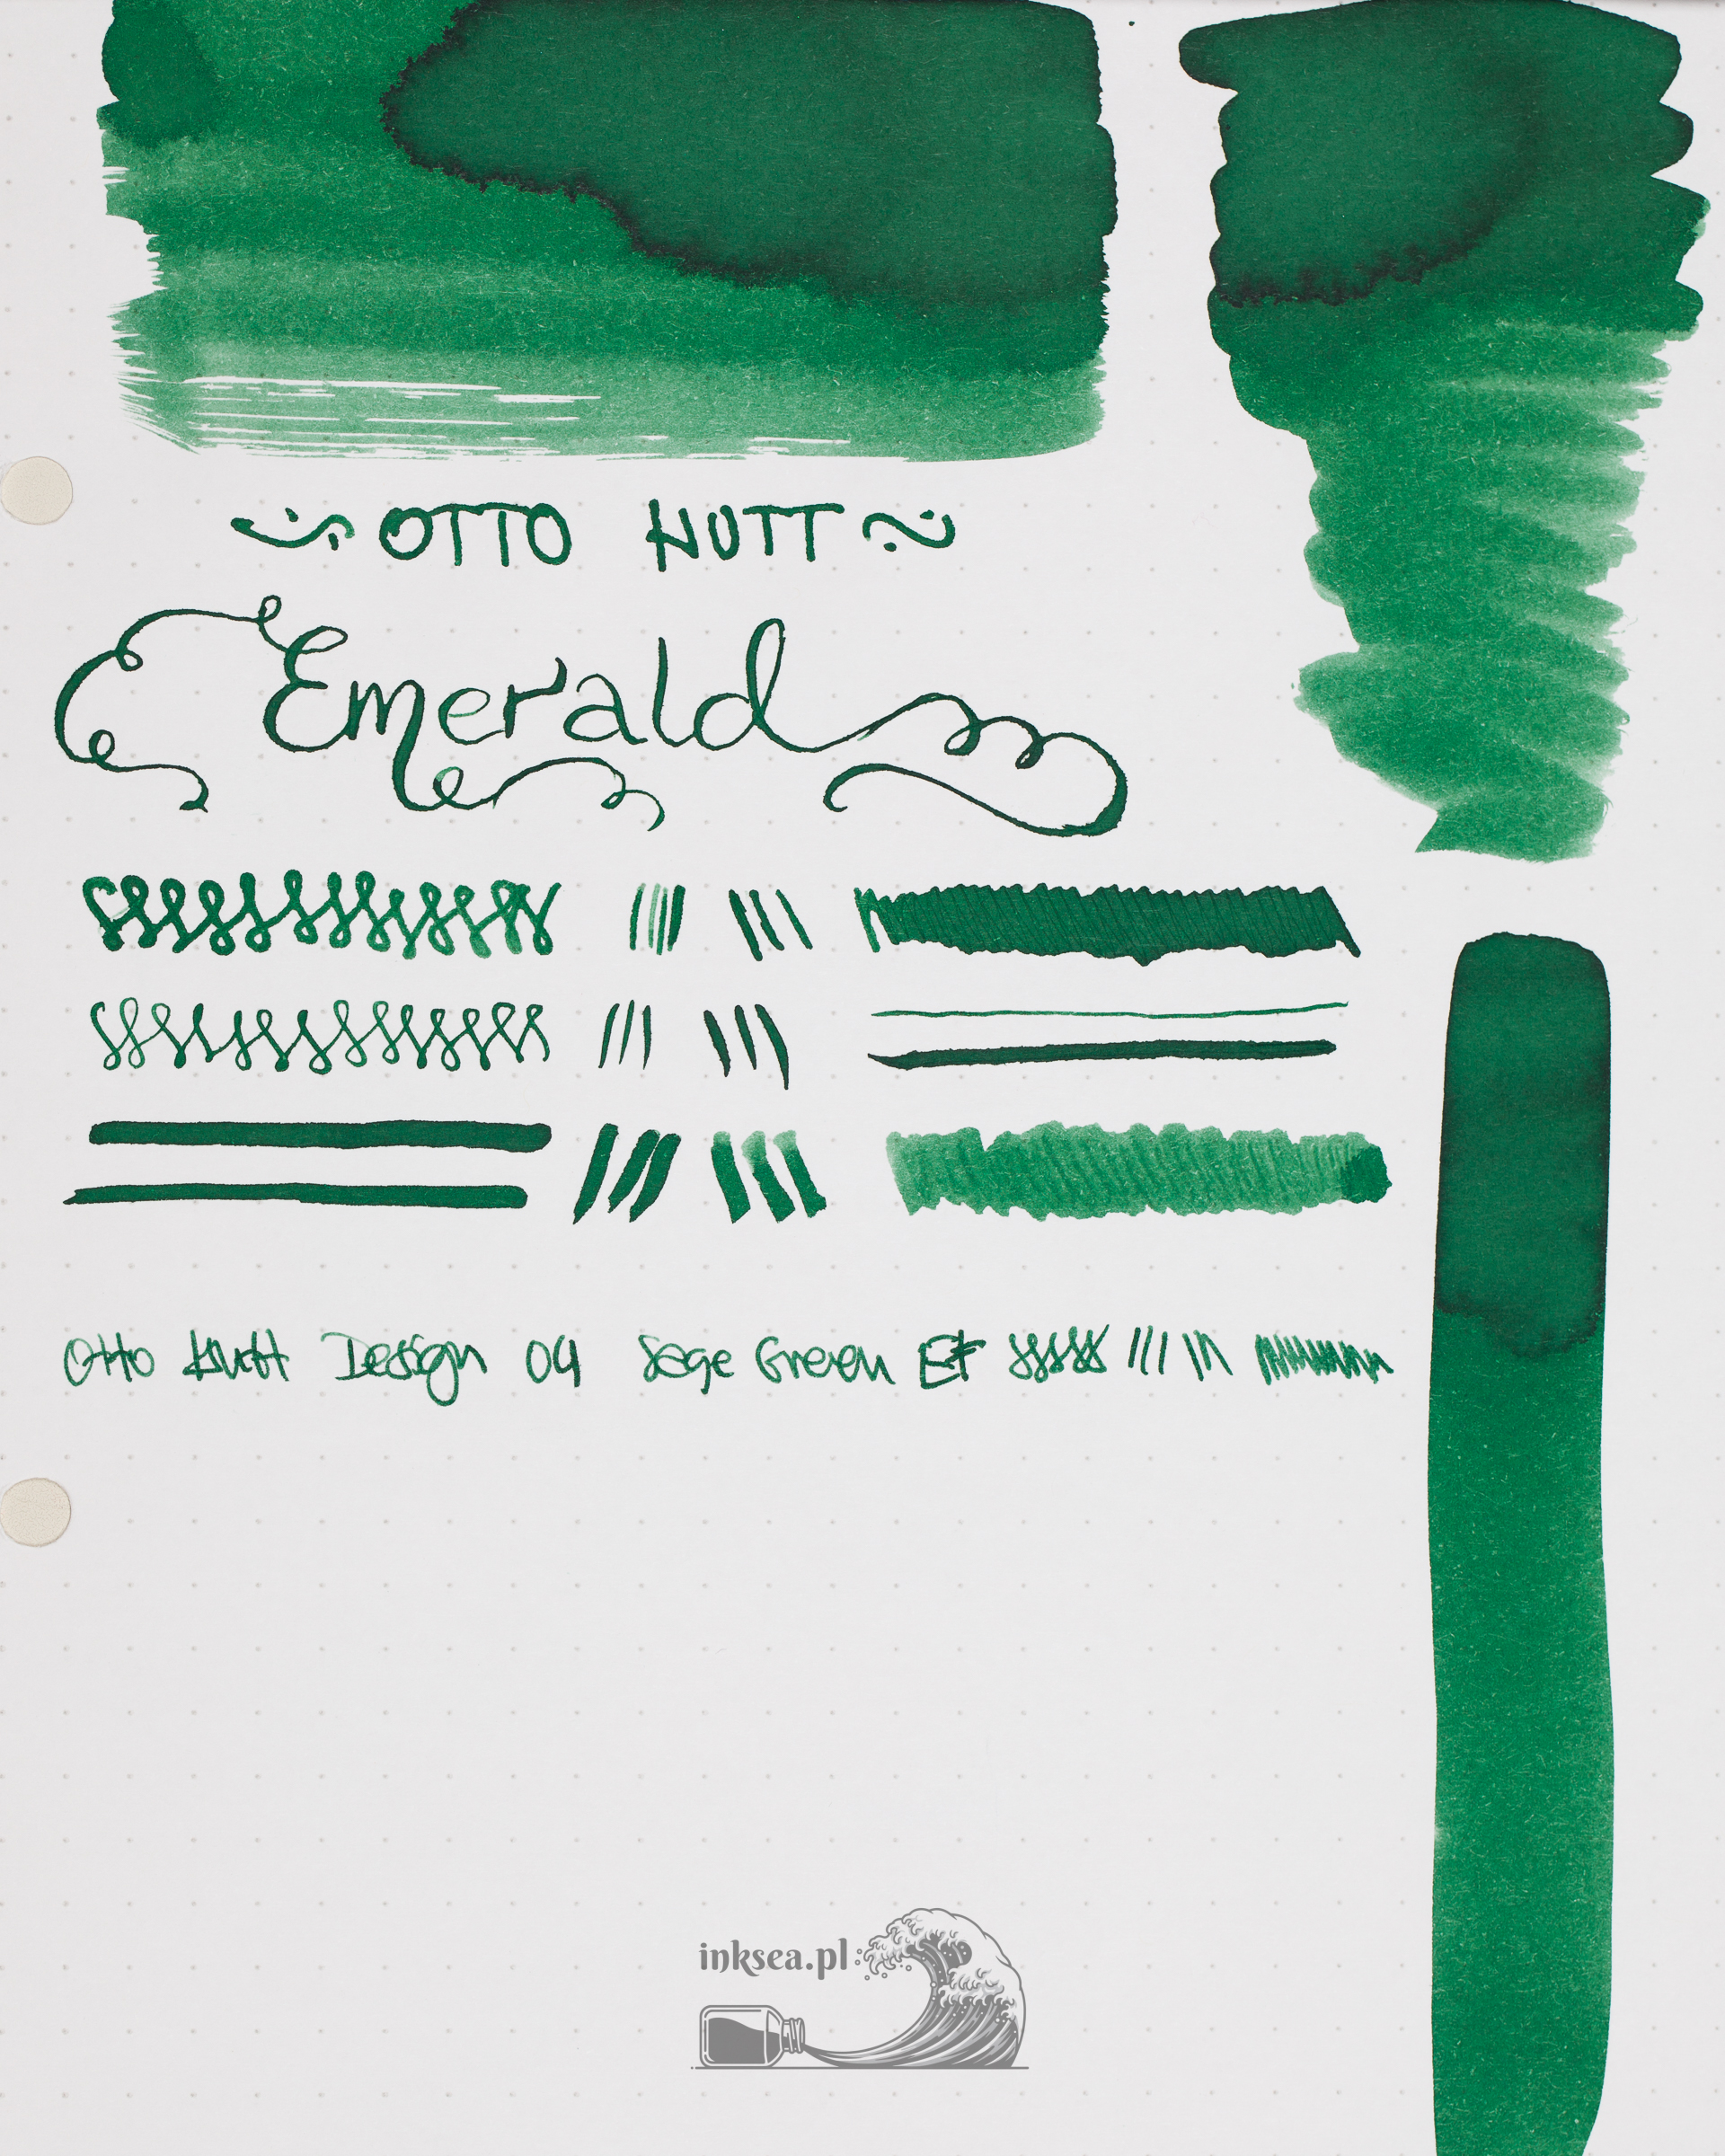 OTTO HUTT
Emerald
Otto Hutt Design 04 Sage Green EF
inksea.pl